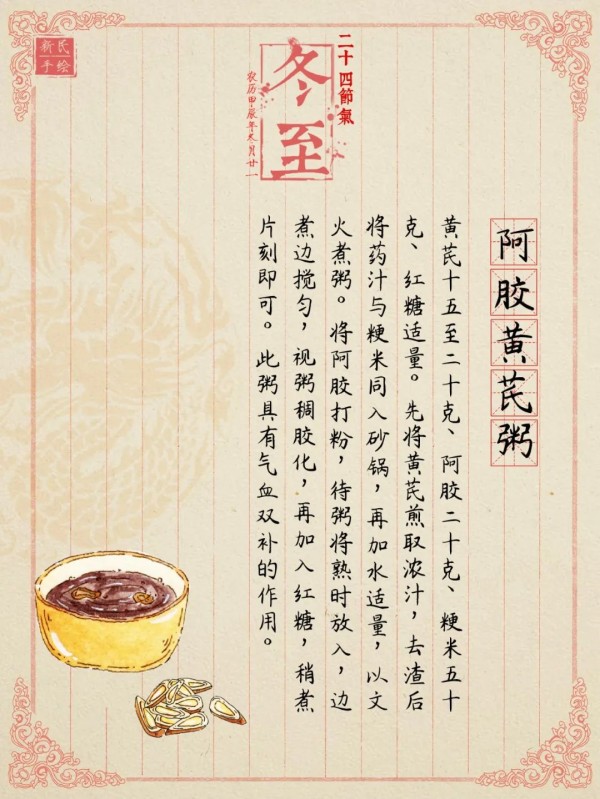 新民
手绘
二十四節氣
冬至
农历甲辰年冬月廿一
阿胶黄芪粥
黄芪十五至二十克、阿胶二十克、粳米五十
克、红糖适量。先将黄芪煎取浓汁，去渣后
将药汁与粳米同入砂锅，再加水适量，以文
火煮粥。将阿胶打粉，待粥将熟时放入，边
煮边搅匀，视粥稠胶化，再加入红糖，稍煮
片刻即可。此粥具有气血双补的作用。